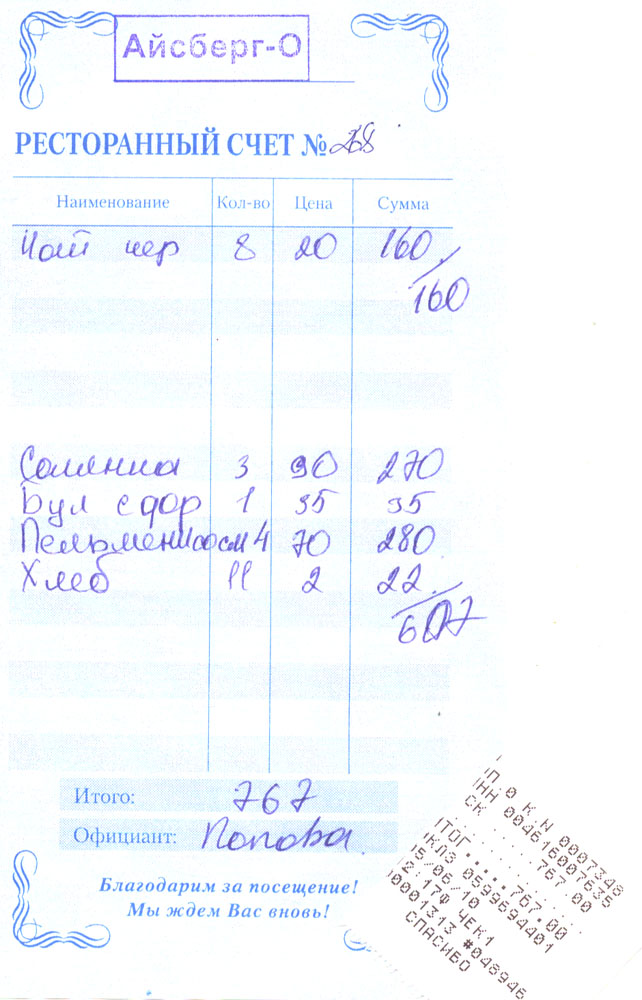 Айсберг-О
РЕСТОРАННЫЙ СЧЕТ № 28
Наименование Кол-во Цена Сумма
чер 8 20 160
160
Солянка 3 90 270
Бул с фор 1 35 35
Пельмени со см 4 70 280
Хлеб 11 2 22
607
Итого: 767
Официант: Попова
Благодарим за посещение!
Мы ждем Вас вновь!
0 К.N 0007348
НН 004616007635
СК ...... 767.00
ТОГ.....767.00
КЛЗ 0599694401
5/06/10
2:17Ф ЧЕК1
0001313 #048946
СПАСИБО